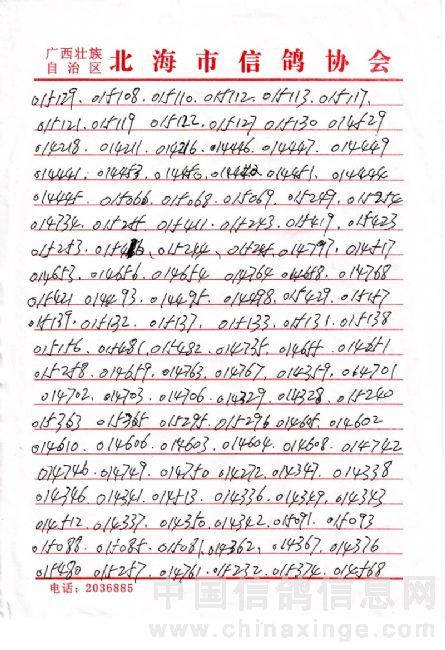 广西壮族
自治区 北海市信鸽协会
015129. 015108. 015110. 015112. 015113. 015117.
015121. 015119 015122. 015127 015130 014529
014218. 014211. 014216. 014446. 014447. 014449
014441. 014453. 014450. 014451. 014444
014445. 015066. 015068. 015069. 015249. 015254
014734. 015255 015411. 015243. 015419. 015423
015253. 015244. 015245. 014797. 014517
014653. 014656. 014654 014764 014658. 014768
015421 014493. 014495. 014498. 015429. 015157
015139. 015132. 015137. 015133. 015131. 015138
015156. 015481. 015482. 014735. 014655. 014651
015258. 014659. 014763. 014767. 014359. 014701
014702. 014703. 014706. 014329. 014328. 015240
015363 015365 015295. 015296 014605. 014602
014610. 014606. 014603. 014604. 014608. 014742
014746. 014749. 014750 014272. 014347. 014338
014346 014341. 014513. 014336. 014349. 014343
014512. 014337. 014350. 014342. 015091. 015093
015088. 015085. 015081. 014362. 014367. 014376
015480 015257. 014761. 015232. 015374. 014568
电话：2036885
中国信鸽信息网
www.chinaxinge.com